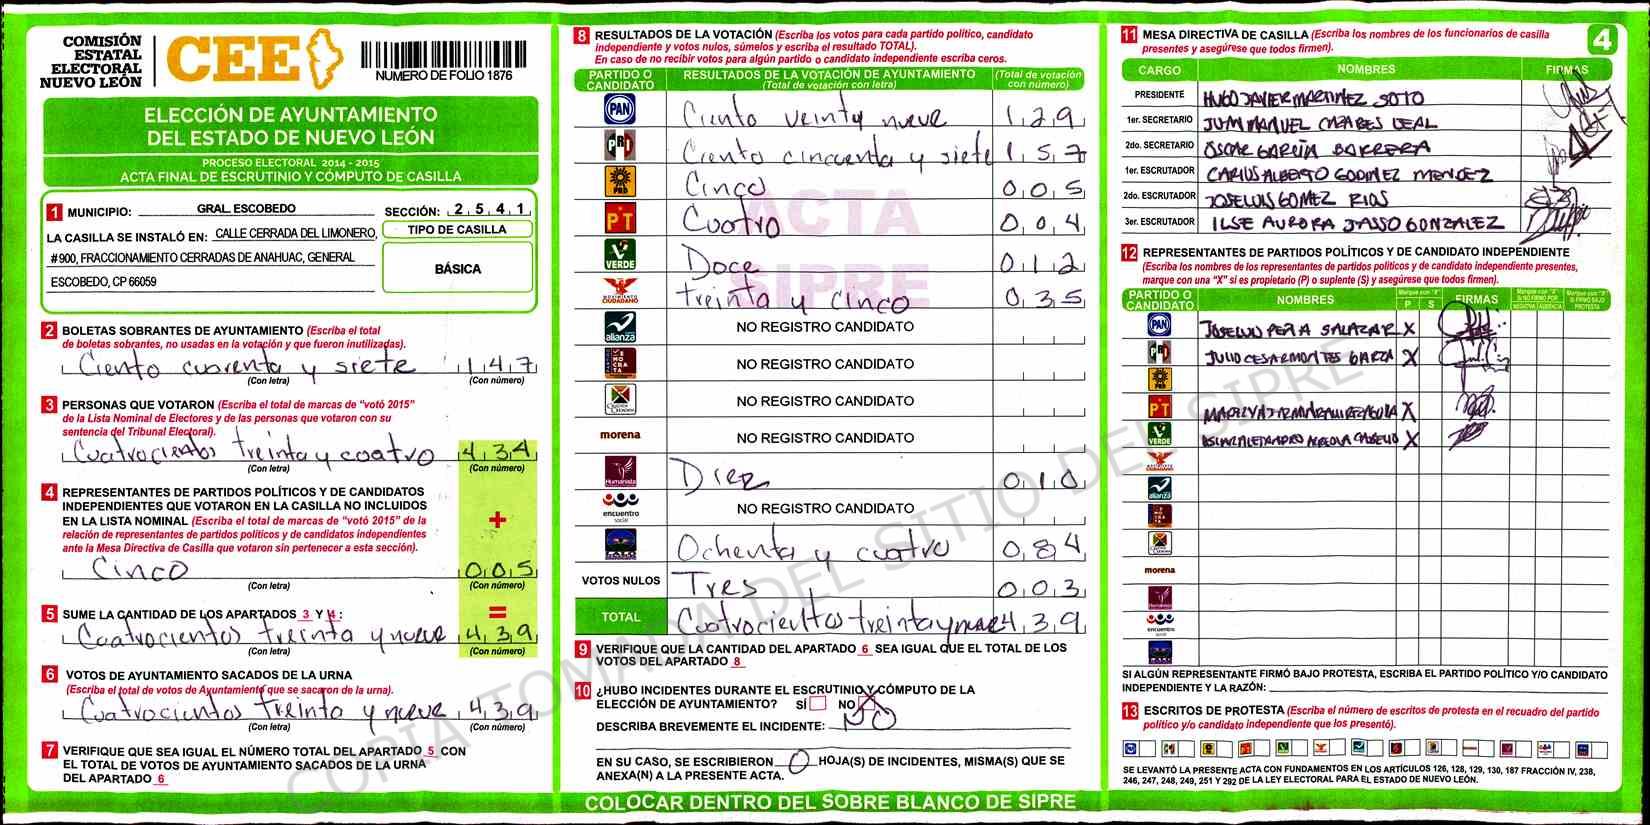 COMISIÓN
ESTATAL
ELECTORAL
NUEVO LEÓN
CEE
NUMERO DE FOLIO 1876
ELECCIÓN DE AYUNTAMIENTO
DEL ESTADO DE NUEVO LEÓN
PROCESO ELECTORAL 2014 - 2015
ACTA FINAL DE ESCRUTINIO Y CÓMPUTO DE CASILLA
1 MUNICIPIO: GRAL. ESCOBEDO SECCIÓN: 2 5 4 1
LA CASILLA SE INSTALÓ EN: CALLE CERRADA DEL LIMONERO,
#900, FRACCIONAMIENTO CERRADAS DE ANAHUAC, GENERAL
ESCOBEDO, CP 66059
TIPO DE CASILLA
BÁSICA
2 BOLETAS SOBRANTES DE AYUNTAMIENTO (Escriba el total
de boletas sobrantes, no usadas en la votación y que fueron inutilizadas).
Ciento cuarenta y siete 1 4 7
(Con letra) (Con número)
3 PERSONAS QUE VOTARON (Escriba el total de marcas de "votó 2015"
de la Lista Nominal de Electores y de las personas que votaron con su
sentencia del Tribunal Electoral).
Cuatrocientos treinta y cuatro 4 3 4
(Con letra) (Con número)
4 REPRESENTANTES DE PARTIDOS POLÍTICOS Y DE CANDIDATOS
INDEPENDIENTES QUE VOTARON EN LA CASILLA NO INCLUIDOS
EN LA LISTA NOMINAL (Escriba el total de marcas de "votó 2015" de la
relación de representantes de partidos políticos y de candidatos independientes
ante la Mesa Directiva de Casilla que votaron sin pertenecer a esta sección).
+
Cinco 0 0 5
(Con letra) (Con número)
5 SUME LA CANTIDAD DE LOS APARTADOS 3 Y 4 : =
Cuatrocientos treinta y nueve 4 3 9
(Con letra) (Con número)
6 VOTOS DE AYUNTAMIENTO SACADOS DE LA URNA
(Escriba el total de votos de Ayuntamiento que se sacaron de la urna).
Cuatrocientos treinta y nueve 4 3 9
(Con letra) (Con número)
7 VERIFIQUE QUE SEA IGUAL EL NÚMERO TOTAL DEL APARTADO 5 CON
EL TOTAL DE VOTOS DE AYUNTAMIENTO SACADOS DE LA URNA
DEL APARTADO 6
8 RESULTADOS DE LA VOTACIÓN (Escriba los votos para cada partido político, candidato
independiente y votos nulos, súmelos y escriba el resultado TOTAL).
En caso de no recibir votos para algún partido o candidato independiente escriba ceros.
PARTIDO O CANDIDATO RESULTADOS DE LA VOTACIÓN DE AYUNTAMIENTO (Total de votación con letra) (Total de votación con número)
PAN Ciento veinty nueve 1 2 9
PRI Ciento cincuenta y siete 1 5 7
PRD Cinco 0 0 5
PT Cuatro 0 0 4
VERDE Doce 0 1 2
MOVIMIENTO CIUDADANO treinta y cinco 0 3 5
alianza NO REGISTRO CANDIDATO
DEMOCRATA NO REGISTRO CANDIDATO
NO REGISTRO CANDIDATO
morena NO REGISTRO CANDIDATO
Humanista Diez 0 1 0
encuentro social NO REGISTRO CANDIDATO
Ochenta y cuatro 0 8 4
VOTOS NULOS Tres 0 0 3
TOTAL Cuatrocientos treinta y nueve 4 3 9
ACTA
SIPRE
9 VERIFIQUE QUE LA CANTIDAD DEL APARTADO 6 SEA IGUAL QUE EL TOTAL DE LOS
VOTOS DEL APARTADO 8
10 ¿HUBO INCIDENTES DURANTE EL ESCRUTINIO Y CÓMPUTO DE LA
ELECCIÓN DE AYUNTAMIENTO? SÍ NO X
DESCRIBA BREVEMENTE EL INCIDENTE: NO
EN SU CASO, SE ESCRIBIERON 0 HOJA(S) DE INCIDENTES, MISMA(S) QUE SE
ANEXA(N) A LA PRESENTE ACTA.
COLOCAR DENTRO DEL SOBRE BLANCO DE SIPRE
4
11 MESA DIRECTIVA DE CASILLA (Escriba los nombres de los funcionarios de casilla
presentes y asegúrese que todos firmen).
CARGO NOMBRES FIRMAS
PRESIDENTE HUGO JAVIER MARTINEZ SOTO
1er. SECRETARIO JUAN MANUEL CAZARES LEAL
2do. SECRETARIO OSCAR GARCÍA BARRERA
1er. ESCRUTADOR CARLOS ALBERTO GODINEZ MENDEZ
2do. ESCRUTADOR JOSE LUIS GOMEZ RIOS
3er. ESCRUTADOR ILSE AURORA JASSO GONZALEZ
12 REPRESENTANTES DE PARTIDOS POLÍTICOS Y DE CANDIDATO INDEPENDIENTE
(Escriba los nombres de los representantes de partidos políticos y de candidato independiente presentes,
marque con una "X" si es propietario (P) o suplente (S) y asegúrese que todos firmen).
PARTIDO O CANDIDATO NOMBRES P S FIRMAS
PAN JOSE LUIS PEÑA SALAZAR X
PRI JULIO CESAR MONTES GARZA X
PRD
PT X
VERDE X
alianza
morena
encuentro social
SI ALGÚN REPRESENTANTE FIRMÓ BAJO PROTESTA, ESCRIBA EL PARTIDO POLÍTICO Y/O CANDIDATO
INDEPENDIENTE Y LA RAZÓN:
13 ESCRITOS DE PROTESTA (Escriba el número de escritos de protesta en el recuadro del partido
político y/o candidato independiente que los presentó).
SE LEVANTÓ LA PRESENTE ACTA CON FUNDAMENTOS EN LOS ARTÍCULOS 126, 128, 129, 130, 187 FRACCIÓN IV, 238,
246, 247, 248, 249, 251 Y 292 DE LA LEY ELECTORAL PARA EL ESTADO DE NUEVO LEÓN.
COPIA TOMADA DEL SITIO DEL SIPRE